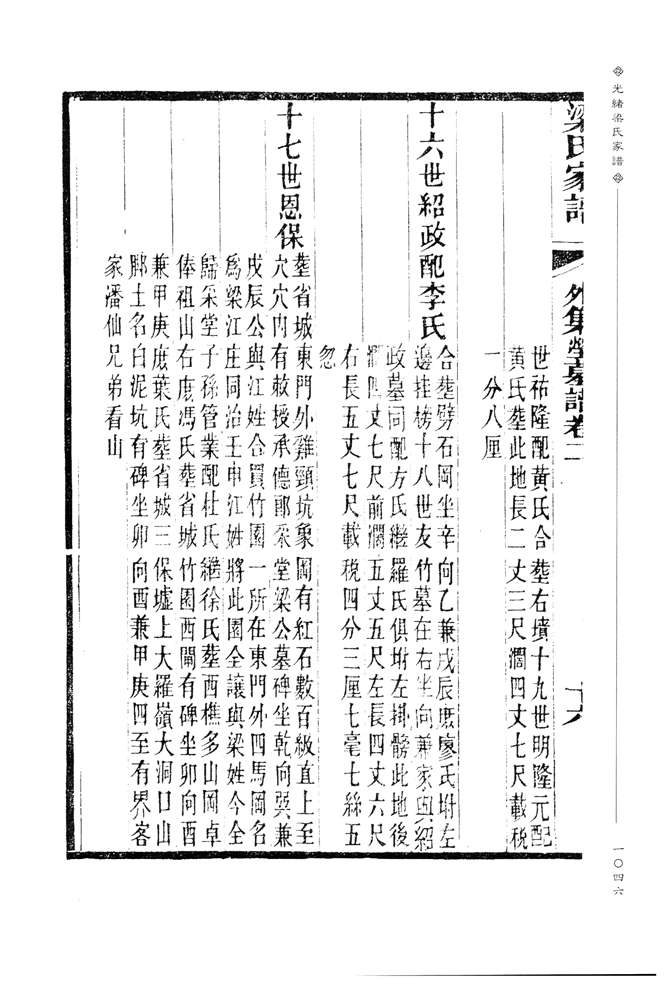 光緒梁氏家譜
一〇四六
梁氏家譜 外集塋墓譜卷二 十六
世祐隆配黃氏合塟右墳十九世明隆元配
黃氏塟此地長二丈三尺濶四丈七尺載税
一分八厘
十六世紹政配李氏合塟劈石岡坐辛向乙兼戌辰庶廖氏坿左
邊挂榜十八世友竹墓在右坐向兼家與紹
政墓同配方氏繼羅氏俱坿左掛髈此地後
濶四丈七尺前濶五丈五尺左長四丈六尺
右長五丈七尺載税四分三厘七毫七絲五
忽
十七世恩保塟省城東門外雞頸坑象岡有紅石數百級直上至
穴穴内有敕授承德郎采堂梁公墓碑坐乾向巽兼
戌辰公與江姓合買竹園一所在東門外四馬岡名
爲梁江庄同治壬申江姓將此園全讓與梁姓今全
歸采堂子孫管業配杜氏繼徐氏塟西樵多山岡卓
俸祖山右庶馮氏塟省城竹園西閘有碑坐卯向酉
兼甲庚庶葉氏塟省城三保墟上大羅嶺大洞口山
脚土名白泥坑有碑坐卯向酉兼甲庚四至有界客
家潘仙兄弟看山